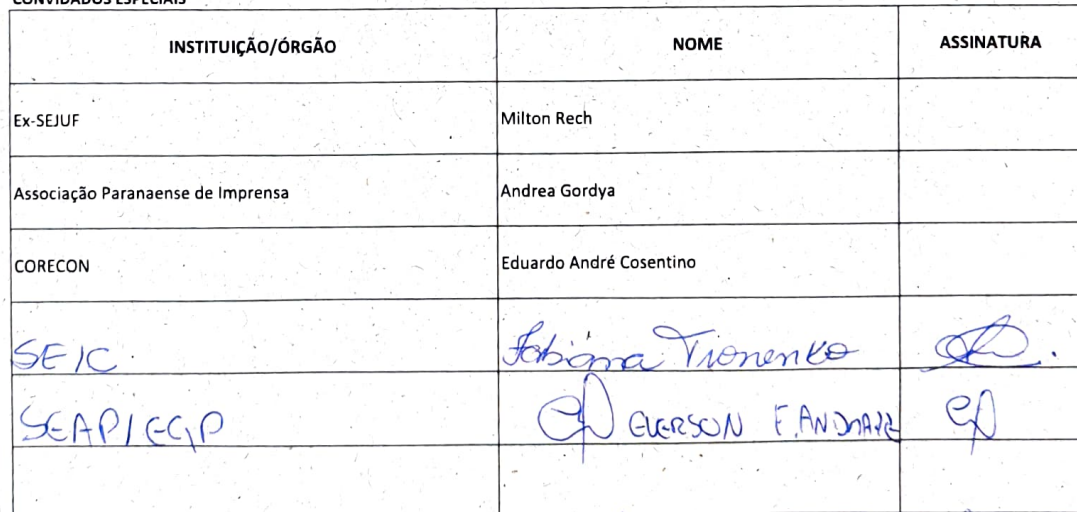 CONVIDADOS ESPECIAIS
INSTITUIÇÃO/ÓRGÃO NOME ASSINATURA
Ex-SEJUF Milton Rech
Associação Paranaense de Imprensa Andrea Gordya
CORECON Eduardo André Cosentino
SEIC. Fabiana
SEAP/EGP EVERSON F. ANDRADE